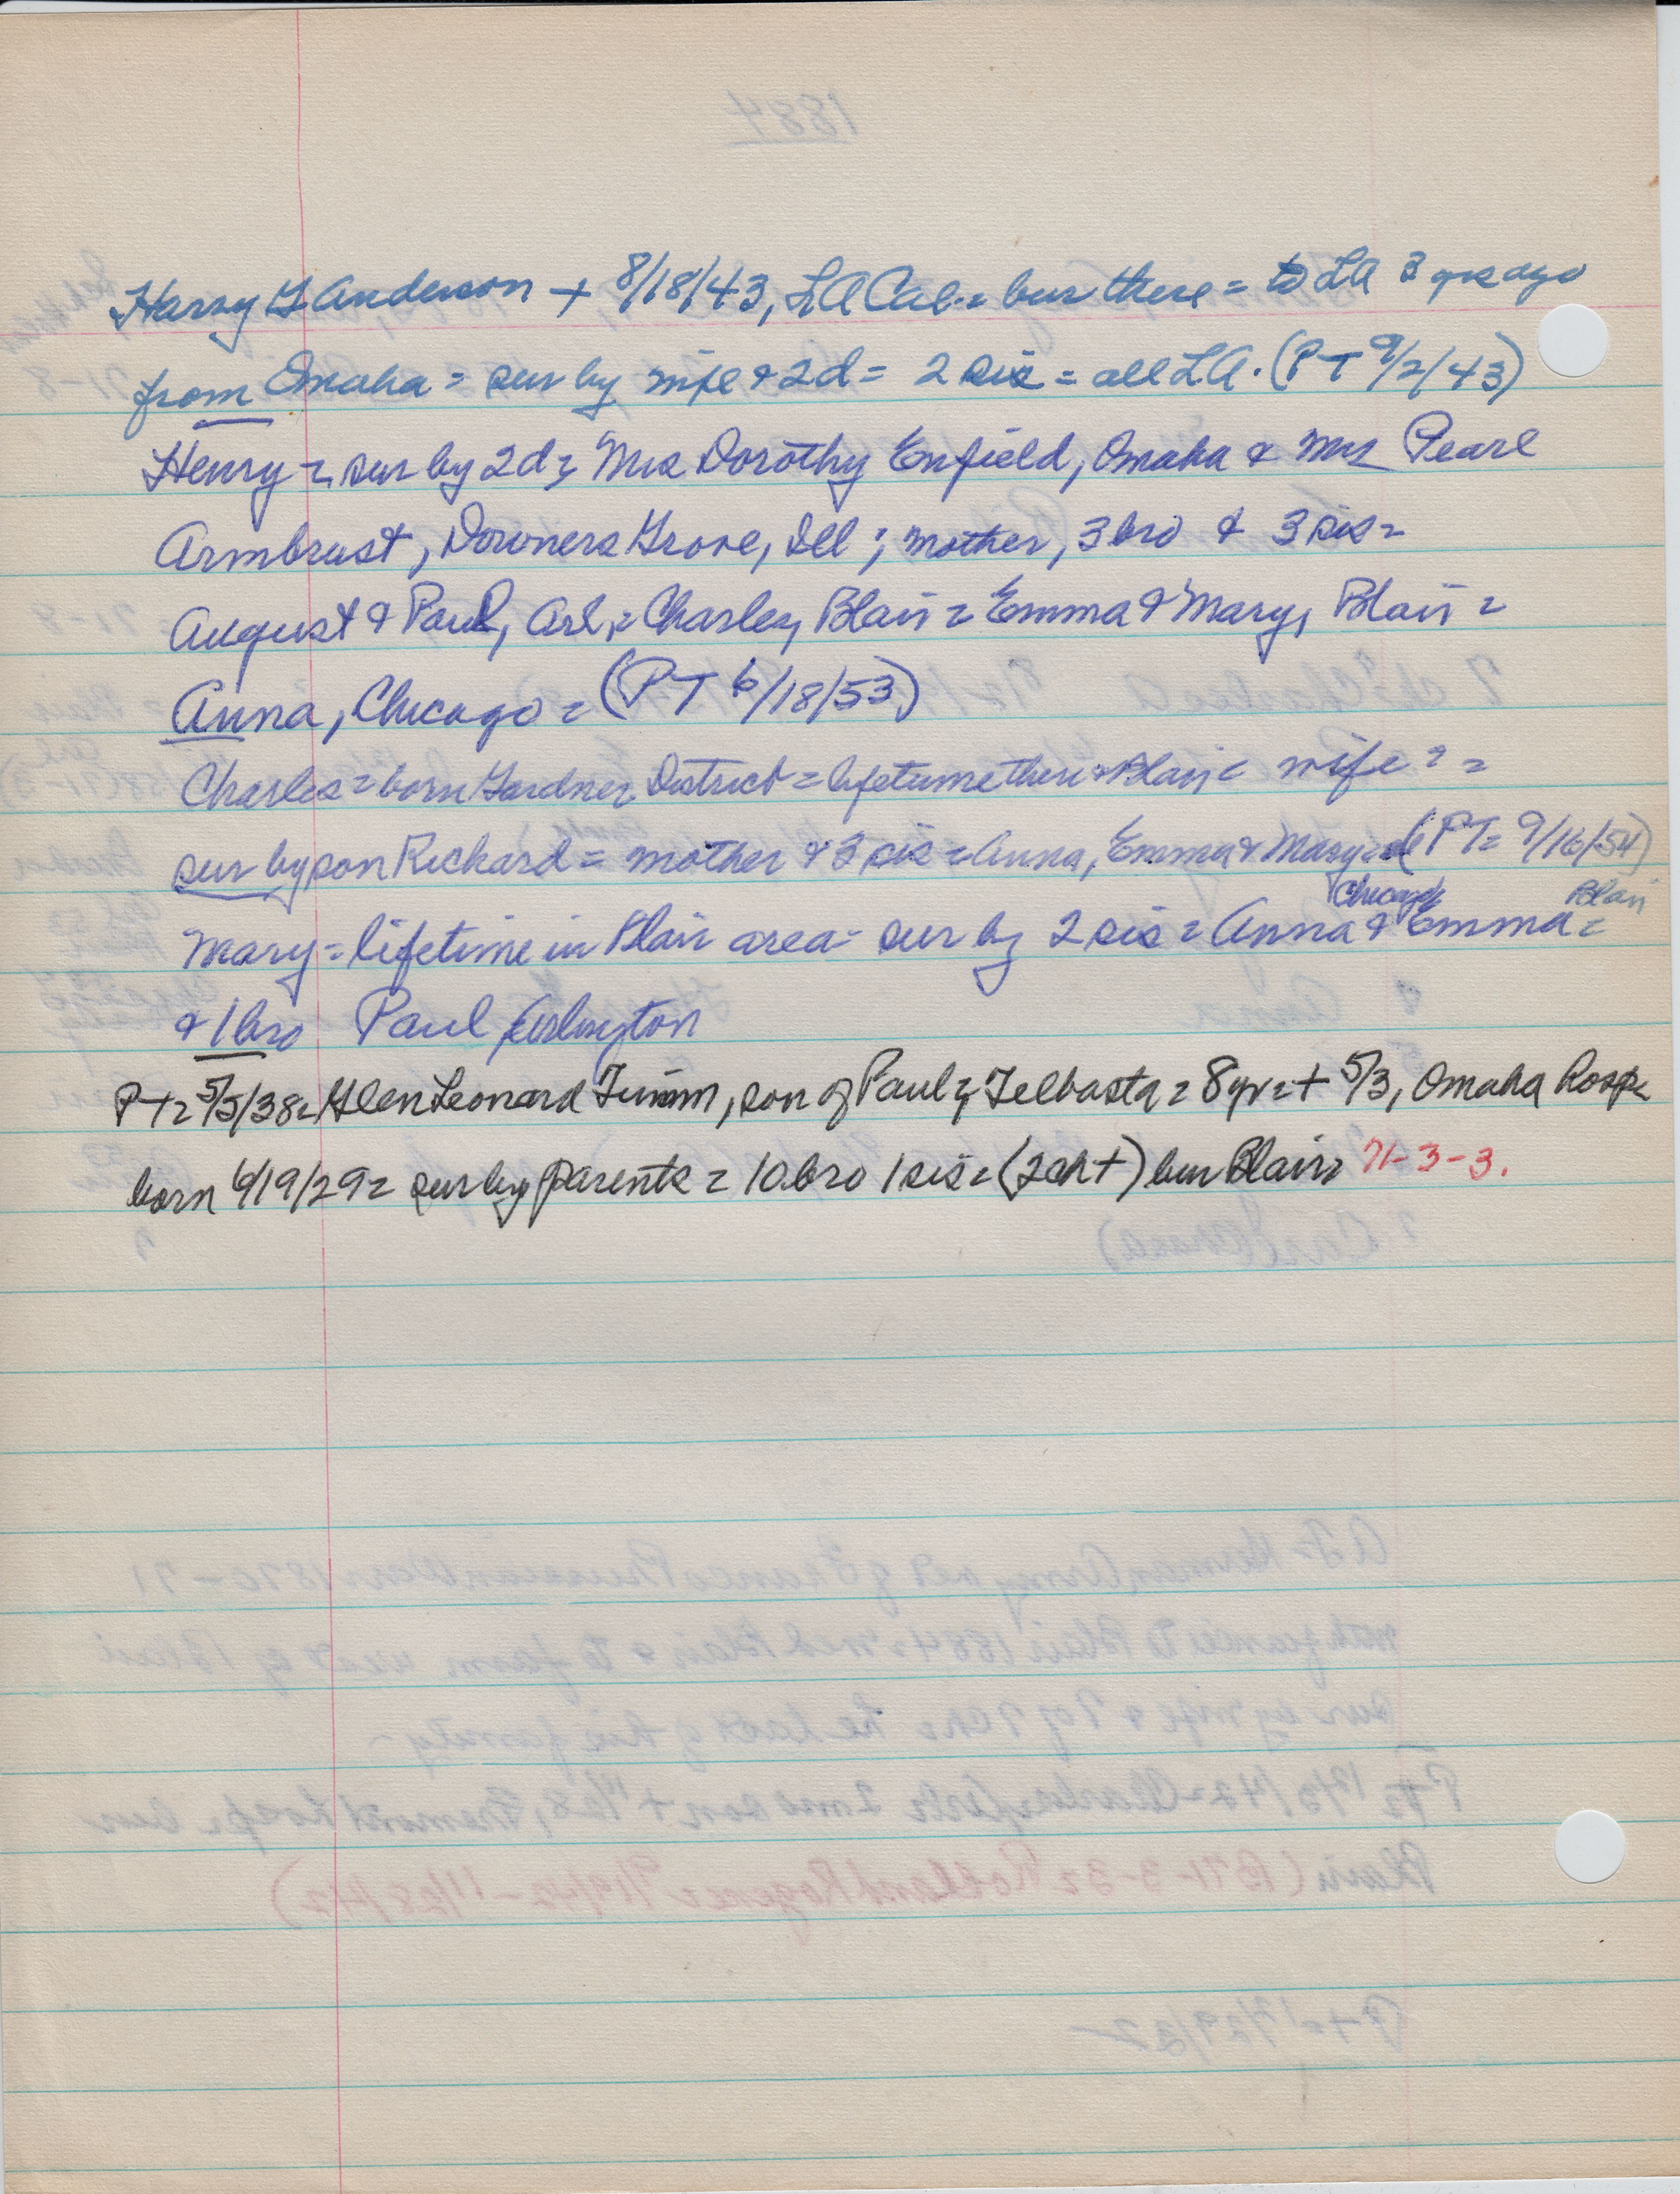 Harry G Anderson + 8/18/43, LA Cal = bur there = to LA 3 yrs ago
from Omaha = sur by wife & 2d = 2 sis = all L.A. (PT 9/2/43)
Henry = sur by 2d = Mrs Dorothy Enfield, Omaha & Mrs Pearl
Armbrust, Downers Grove, Ill ; mother, 3 bro & 3 sis =
August & Paul, Arl, = Charley, Blair = Emma & Mary, Blair =
Anna, Chicago = (PT 6/18/53)
Charles = born Gardner District = lifetime there & Blair = wife ? =
sur by son Richard = mother & 3 sis = Anna, Emma & Mary = (PT = 9/16/54)
Chicago Blair
Mary = lifetime in Blair area - sur by 2 sis = Anna & Emma =
& 1 bro Paul Arlington
PT = 5/5/38 = Glen Leonard Timm, son of Paul = Telbasta = 8 yr = + 5/3, Omaha hosp =
born 6/19/29 = sur by parents = 10 bro 1 sis = (2 ch +) bur Blair = 71-3-3.